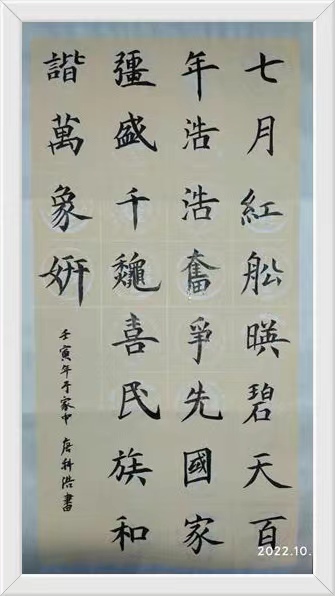 七月紅舩暎碧天百
年浩浩奮爭先國家
彊盛千龝喜民族和
諧萬象妍
壬寅年于家中 唐科浩書
2022.10.